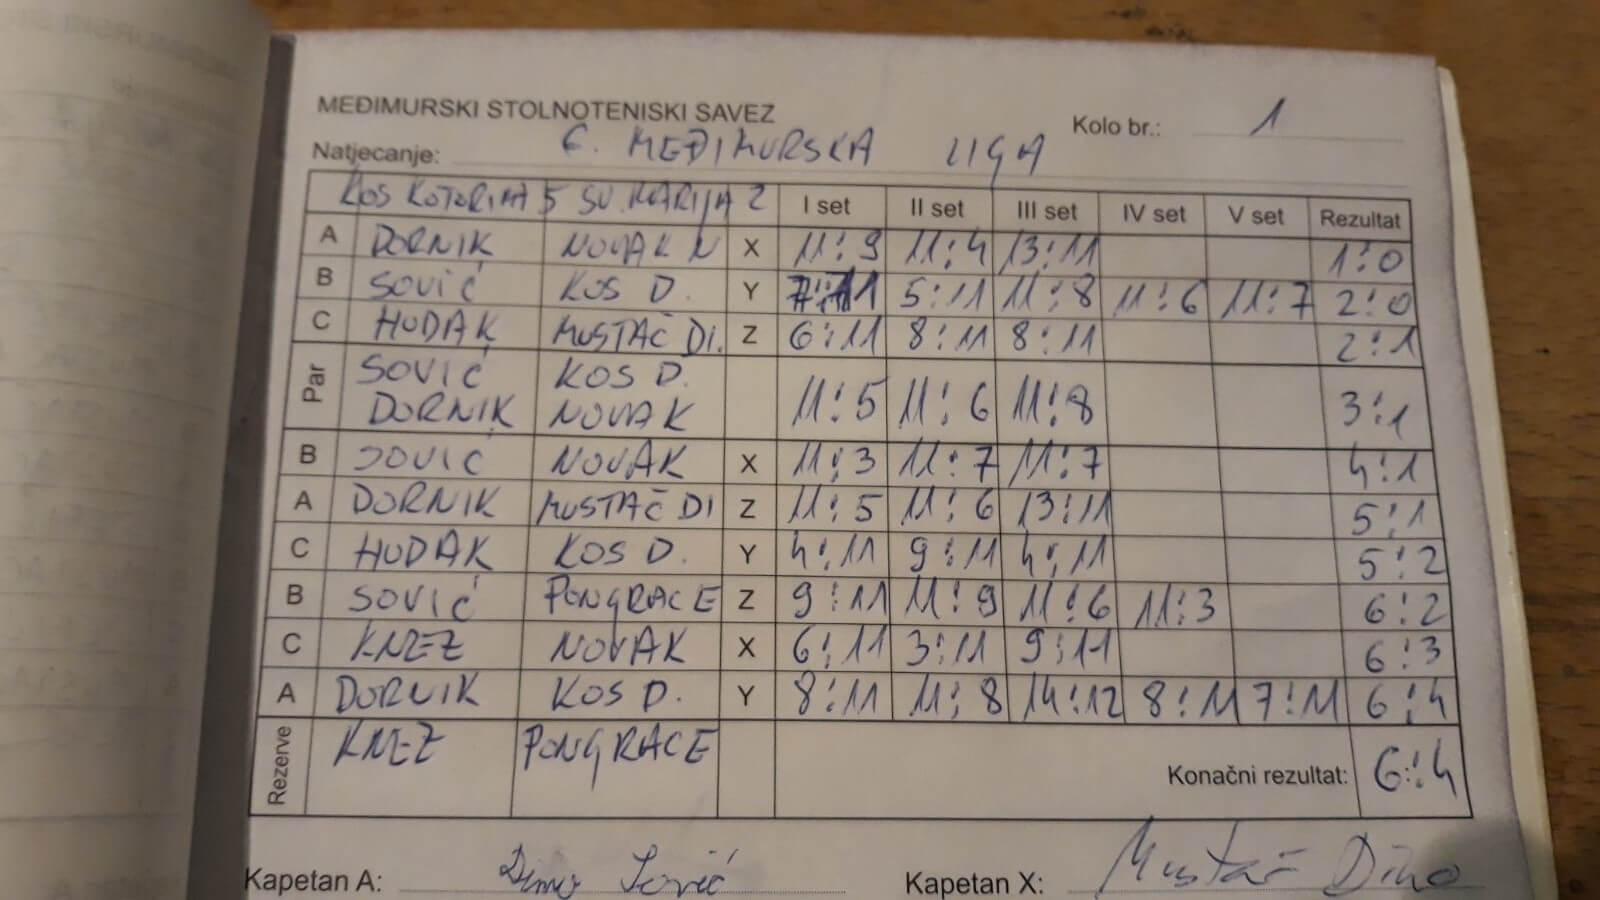 MEĐIMURSKI STOLNOTENISKI SAVEZ
Kolo br.: 1
Natjecanje: 6. MEĐIMURSKA LIGA
KOS KOTORIBA 5 SV. MARIJA 2 I set II set III set IV set V set Rezultat
A DORNIK NOVAK N X 11:9 11:4 13:11 1:0
B SOVIĆ KOS D. Y 7:11 5:11 11:8 11:6 11:7 2:0
C HUDAK MUSTAČ DI. Z 6:11 8:11 8:11 2:1
Par SOVIĆ KOS D.
DORNIK NOVAK 11:5 11:6 11:8 3:1
B SOVIĆ NOVAK X 11:3 11:7 11:7 4:1
A DORNIK MUSTAČ DI Z 11:5 11:6 13:11 5:1
C HUDAK KOS D. Y 4:11 9:11 4:11 5:2
B SOVIĆ PONGRACE Z 9:11 11:9 11:6 11:3 6:2
C KNEZ NOVAK X 6:11 3:11 9:11 6:3
A DORNIK KOS D. Y 8:11 11:8 14:12 8:11 7:11 6:4
Rezerve KNEZ PONGRACE
Konačni rezultat: 6:4
Kapetan A: Sović Kapetan X: Mustač Dino